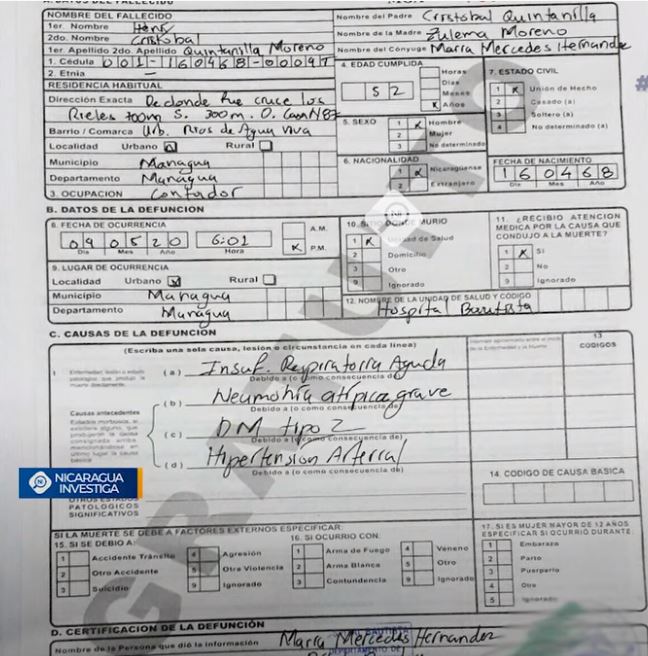 A. DATOS DEL FALLECIDO
NOMBRE DEL FALLECIDO
1er. Nombre Henry
2do. Nombre Cristobal
1er. Apellido 2do. Apellido Quintanilla Moreno
1. Cédula 001-160468-0009T
2. Etnia —
Nombre del Padre Cristobal Quintanilla
Nombre de la Madre Zulema Moreno
Nombre del Cónyuge Maria Mercedes Hernande
RESIDENCIA HABITUAL
Dirección Exacta De donde fue cruce los
Rieles 700m S. 300m. O. Casa N 87
Barrio / Comarca Urb. Rios de Agua viva
Localidad Urbano Rural
Municipio Managua
Departamento Managua
3. OCUPACION Contador
4. EDAD CUMPLIDA
52
Horas
Dias
Meses
x Años
5. SEXO
1 x Hombre
2 Mujer
3 No determinado
6. NACIONALIDAD
1 x Nicaragüense
2 Extranjero
7. ESTADO CIVIL
1 x Unión de Hecho
2 Casado (a)
3 Soltero (a)
4 No determinado (a)
FECHA DE NACIMIENTO
160468
Dia Mes Año
B. DATOS DE LA DEFUNCION
8. FECHA DE OCURRENCIA
090520 6:01
Dia Mes Año Hora
A.M.
x P.M.
9. LUGAR DE OCURRENCIA
Localidad Urbano x Rural
Municipio Managua
Departamento Managua
10. SITIO DONDE MURIO
1 x Unidad de Salud
2 Domicilio
3 Otro
9 Ignorado
11. ¿RECIBIO ATENCION
MEDICA POR LA CAUSA QUE
CONDUJO A LA MUERTE?
1 x Si
2 No
9 Ignorado
12. NOMBRE DE LA UNIDAD DE SALUD Y CODIGO
Hospital Bautista
C. CAUSAS DE LA DEFUNCION
(Escriba una sola causa, lesión o circunstancia en cada línea)
13
CODIGOS
(a) Insuf. Respiratoria Aguda
Debido a (o como consecuencia de)
(b) Neumonia atipica grave
Debido a (o como consecuencia de)
Causas antecedentes
(c) DM tipo 2
Debido a (o como consecuencia de)
(d) Hipertension Arterial
Debido a (o como consecuencia de)
14. CODIGO DE CAUSA BASICA
NICARAGUA
INVESTIGA
OTROS ESTADOS
PATOLOGICOS
SIGNIFICATIVOS
SI LA MUERTE SE DEBE A FACTORES EXTERNOS ESPECIFICAR:
15. SI SE DEBIO A:
1 Accidente Tránsito
2 Otro Accidente
3 Suicidio
4 Agresión
5 Otra Violencia
9 Ignorado
16. SI OCURRIO CON:
1 Arma de Fuego
2 Arma Blanca
3 Contundencia
4 Veneno
5 Otro
9 Ignorado
17. SI ES MUJER MAYOR DE 12 AÑOS
ESPECIFICAR SI OCURRIÓ DURANTE
1 Embarazo
2 Parto
3 Puerperio
4 Otra
5 Ignorado
D. CERTIFICACION DE LA DEFUNCIÓN
Nombre de la Persona que dió la información Maria Mercedes Hernandez
DEPARTAMENTO DE
GRATUITO